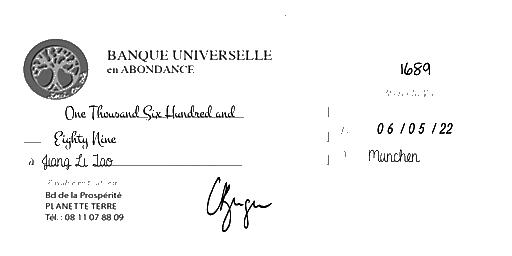 BANQUE UNIVERSELLE
en ABONDANCE
1689
One Thousand Six Hundred and
Eighty Nine
06/05/22
à Jiang Li Tao
Munchen
Bd de la Prospérité
PLANETTE TERRE
Tél. : 08 11 07 88 09